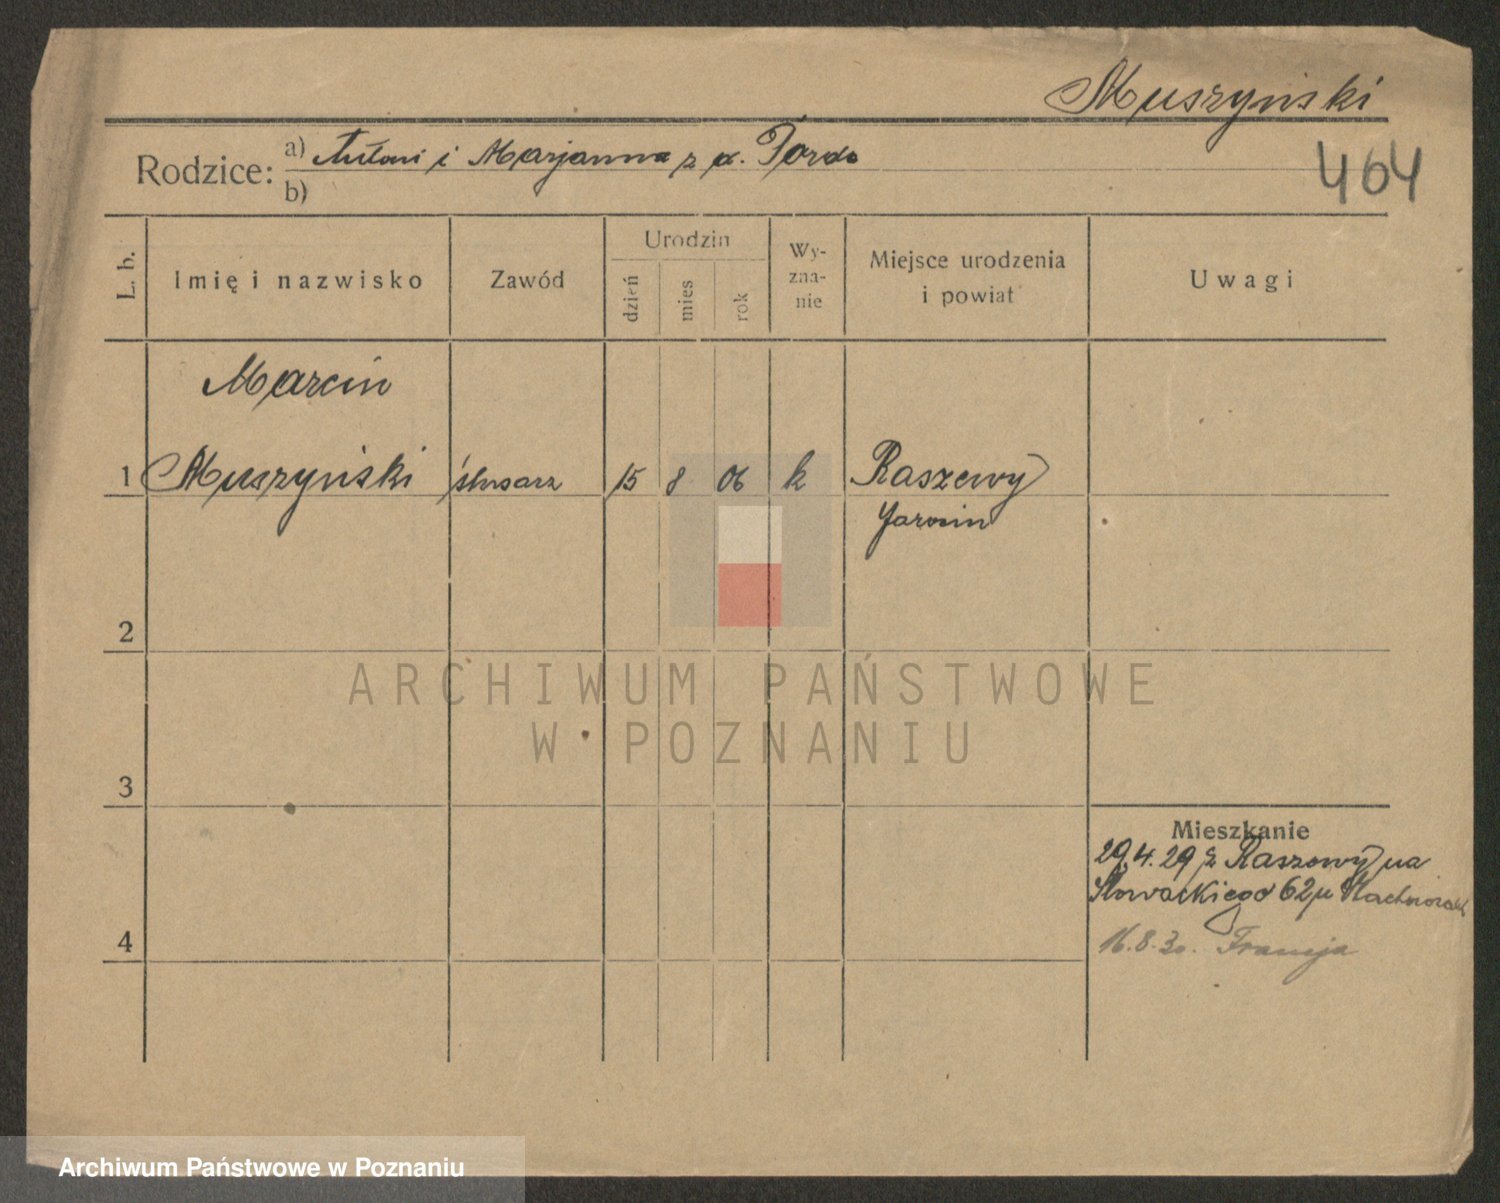 Muszyński
464
Rodzice: a) Antoni i Marjanna z d. Torda
b)
L. b. Imię i nazwisko Zawód Urodzin dzień mies rok Wy-zna-nie Miejsce urodzenia i powiat Uwagi
Marcin
1 Muszyński ślusarz 15 8 06 k Raszewy
Jarocin
2
ARCHIWUM PAŃSTWOWE
W POZNANIU
3
Mieszkanie
29.4.29 z Raszewy na
Słowackiego 62 u
4
16.8.30. Francja
Archiwum Państwowe w Poznaniu